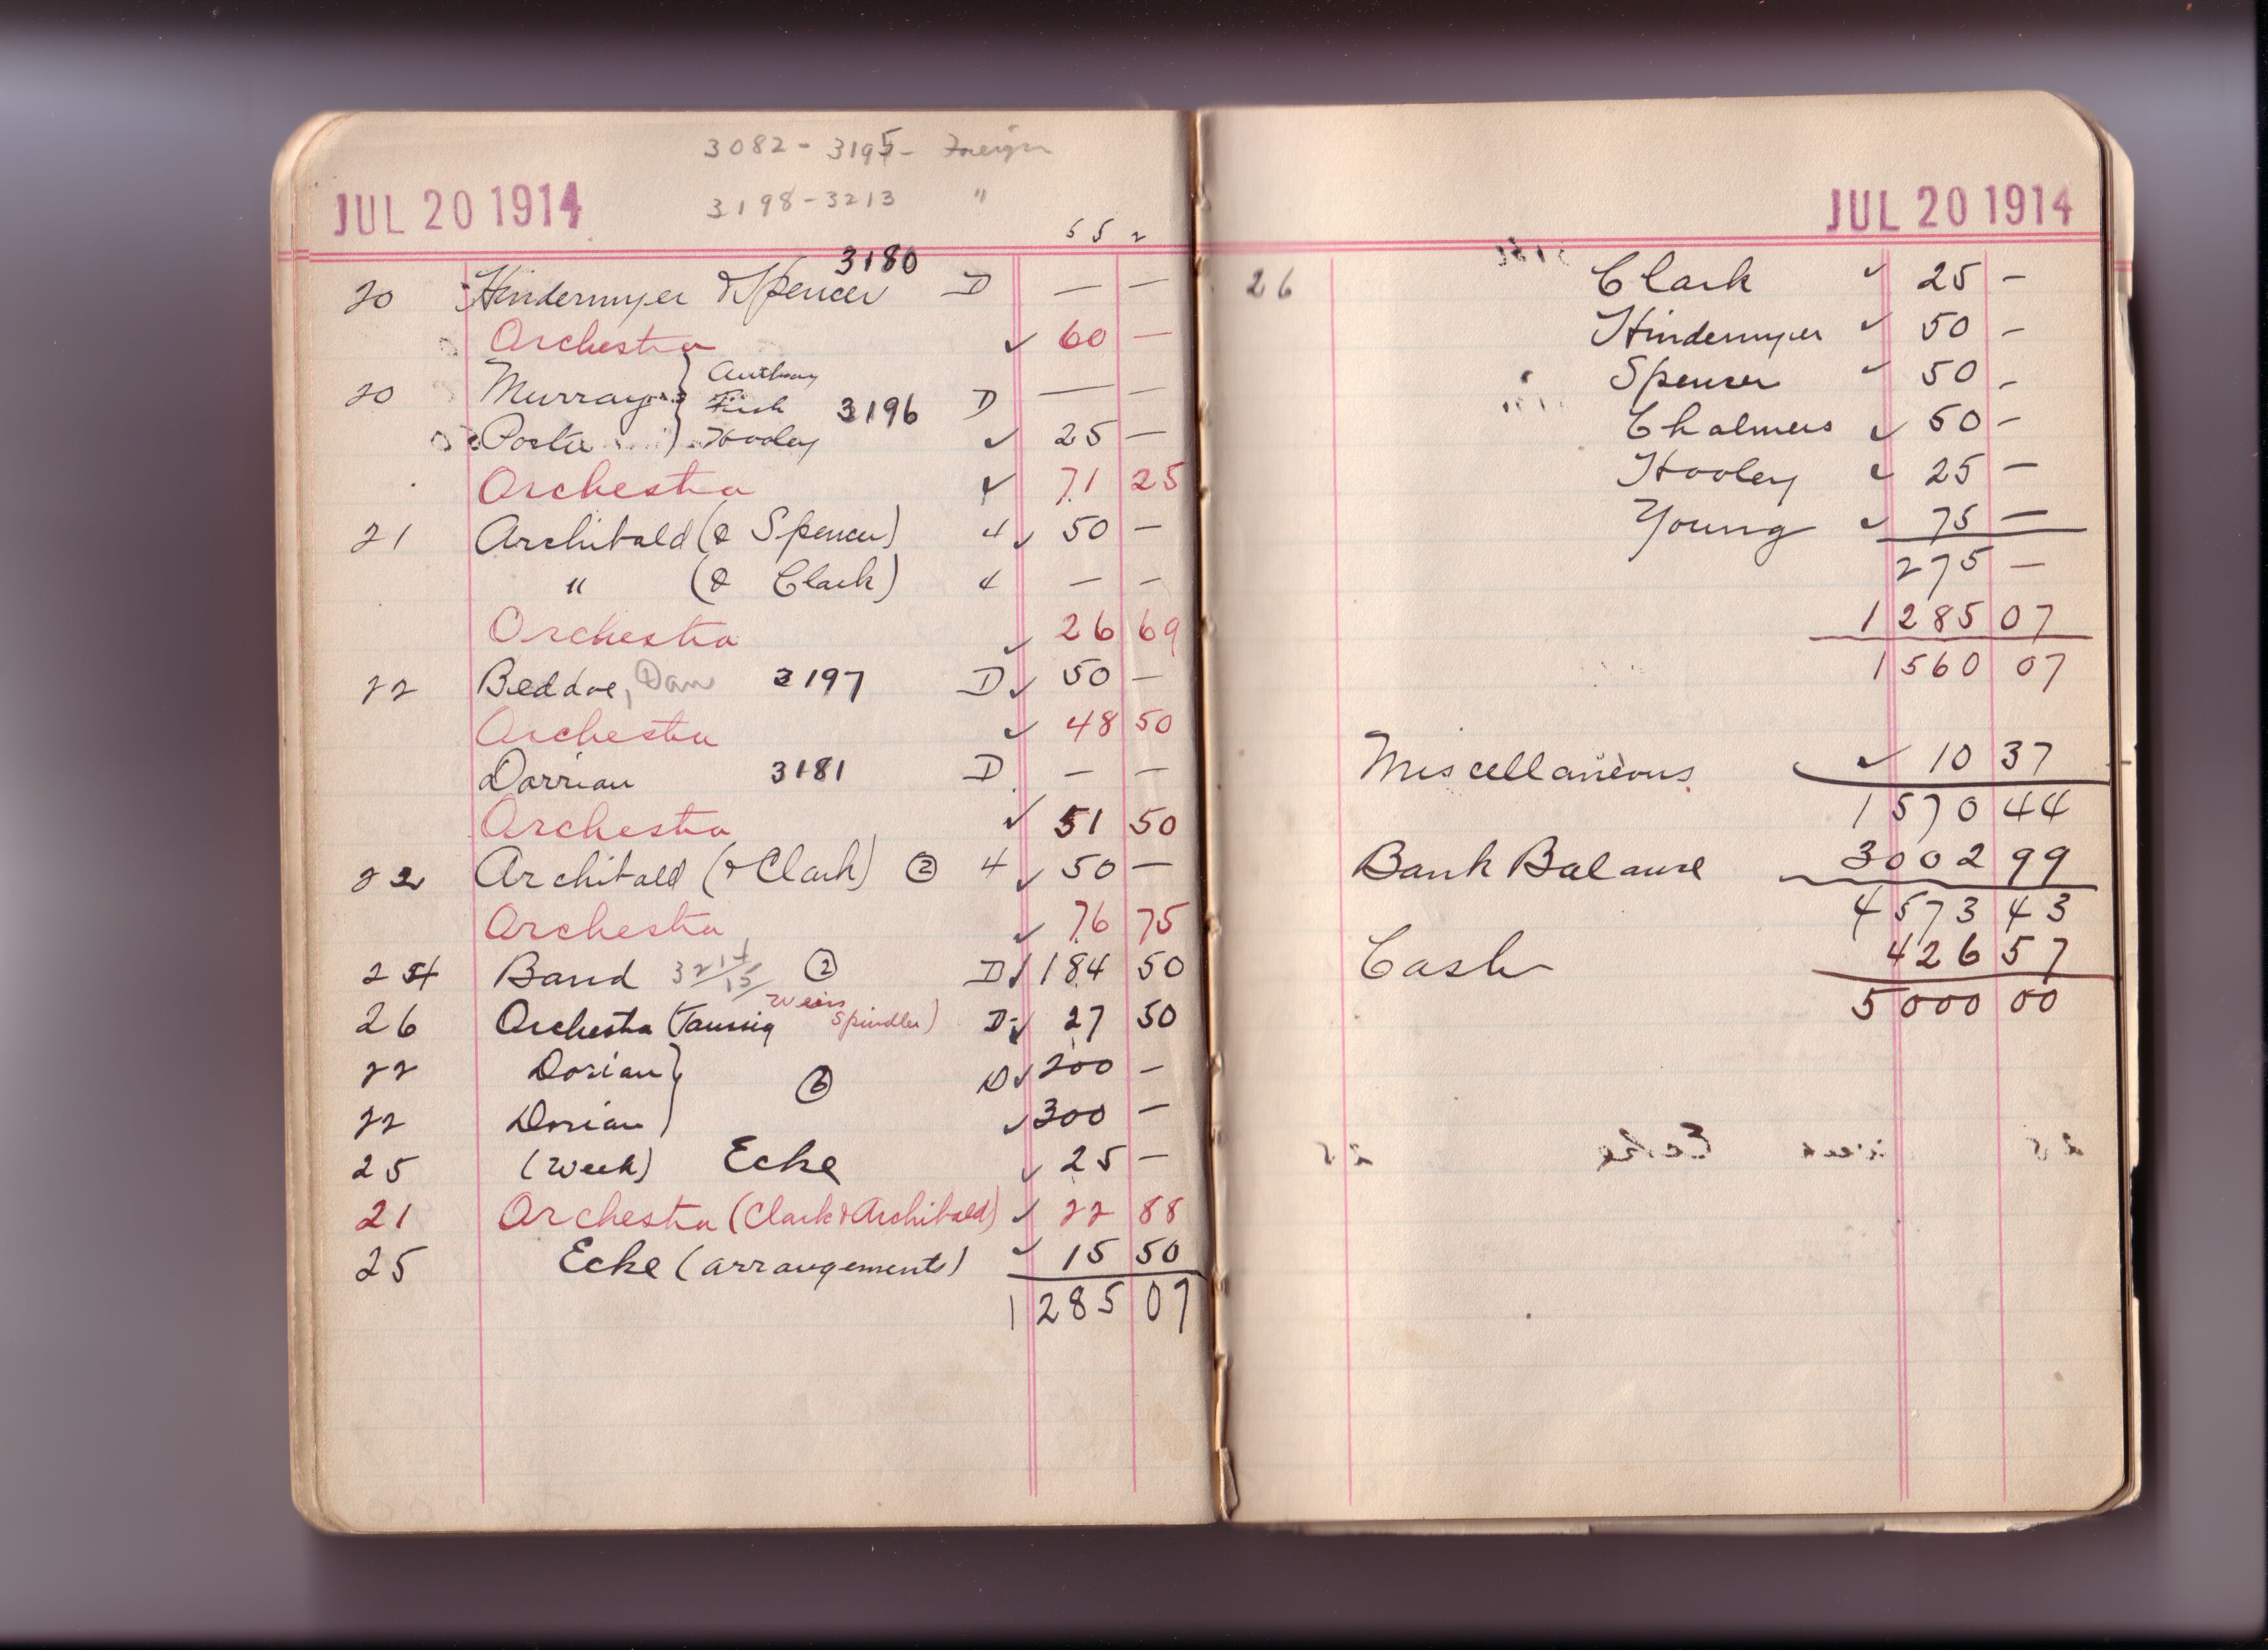 3082 - 3195 - Foreign
JUL 20 1914
3198 - 3213 "
5 5 2
20 Hindermyer & Spencer 3180 D — —
Orchestra ✓ 60 —
20 Murray } Anthony D — —
Fish 3196
Porter ) Hooley ✓ 25 —
Orchestra ✓ 71 25
21 Archibald (& Spencer) 4 ✓ 50 —
" (& Clark) 4 — —
Orchestra ✓ 26 69
22 Beddoe, Dan 3197 D ✓ 50 —
Orchestra ✓ 48 50
Dorrian 3181 D — —
Orchestra ✓ 51 50
22 Archibald (& Clark) ② 4 ✓ 50 —
Orchestra ✓ 76 75
24 Band 3214/15/ ② D ✓ 184 50
26 Orchestra (Taussig Weiss Spindler) D ✓ 27 50
22 Dorian } ⑥ D ✓ 200 —
22 Dorian ) ✓ 300 —
25 (Week) Ecke ✓ 25 —
21 Orchestra (Clark & Archibald) ✓ 22 88
25 Ecke (arrangements) ✓ 15 50
1285 07
JUL 20 1914
26 Clark ✓ 25 —
Hindermyer ✓ 50 —
Spencer ✓ 50 —
Chalmers ✓ 50 —
Hooley ✓ 25 —
Young ✓ 75 —
275 —
1285 07
1560 07
Miscellaneous ✓ 10 37
1570 44
Bank Balance 3002 99
4573 43
Cash 426 57
5000 00